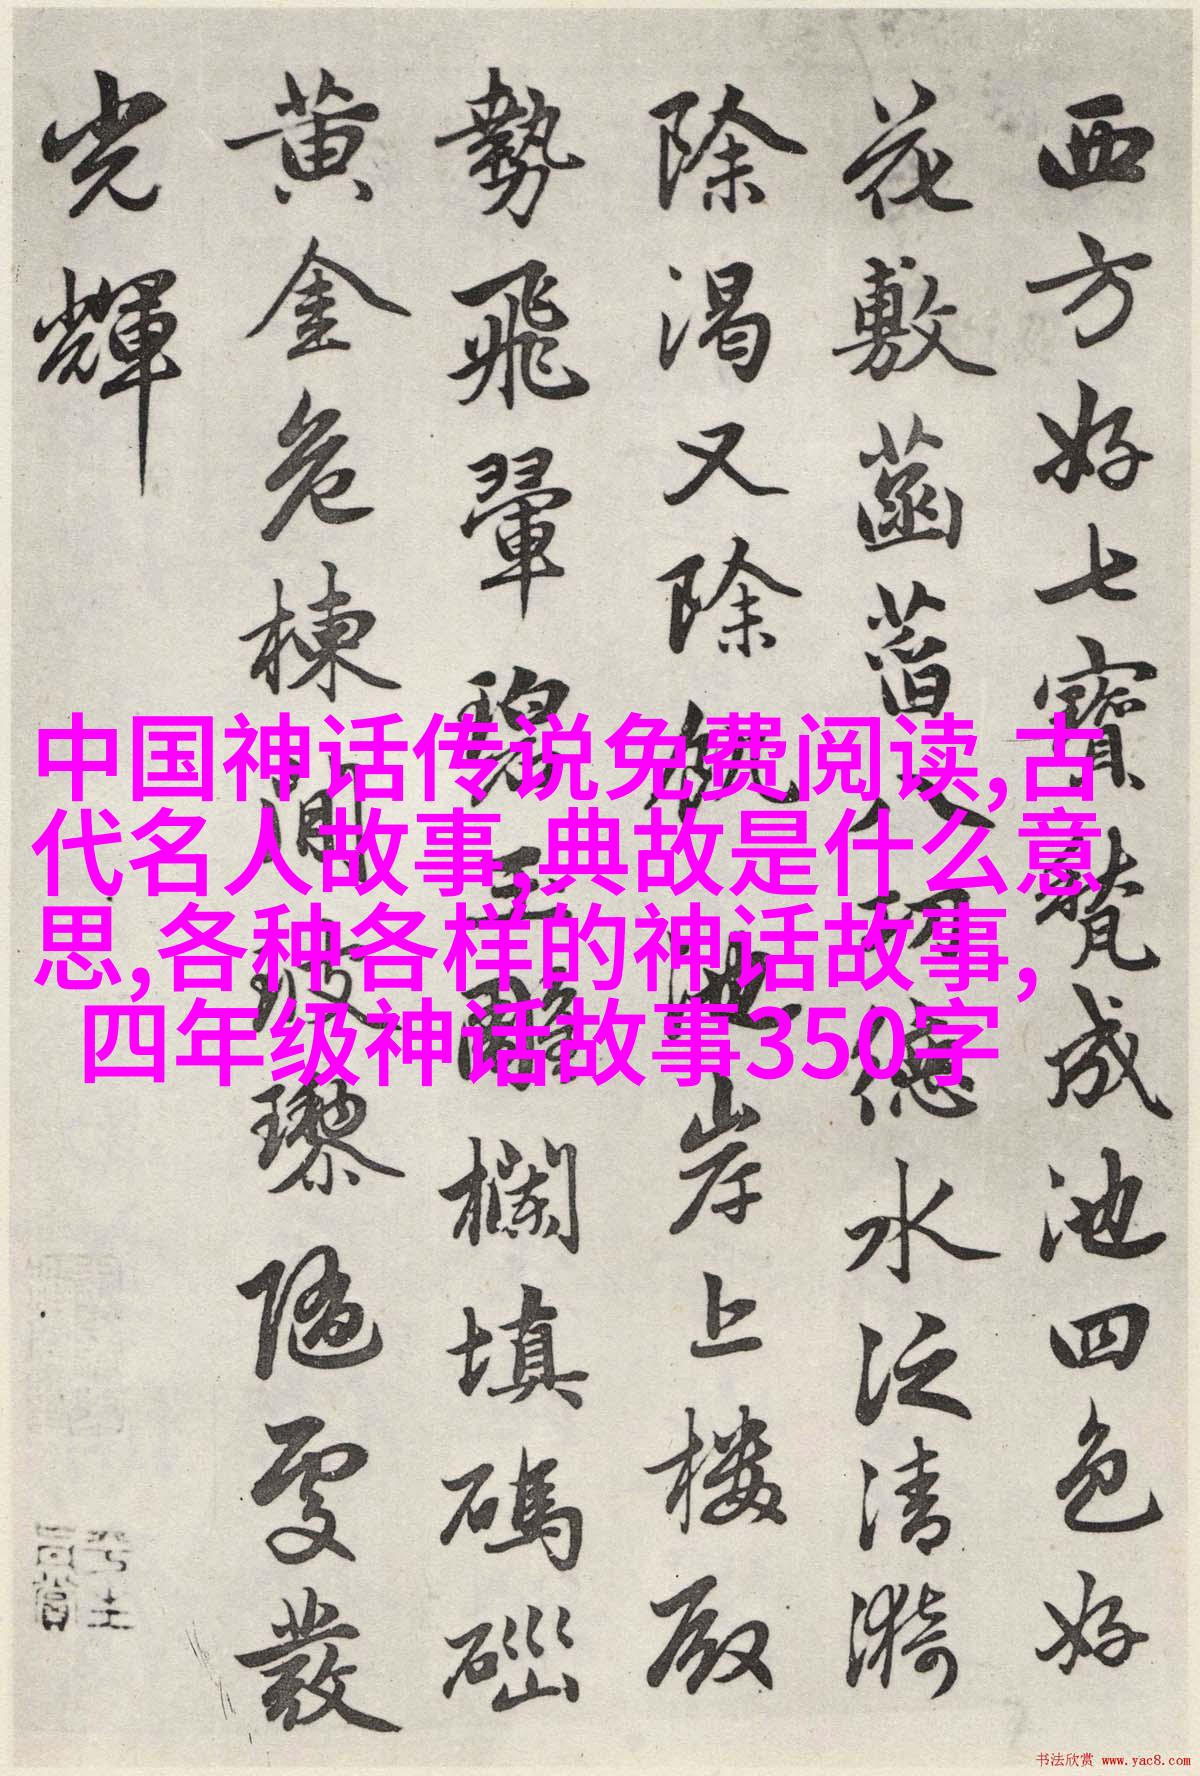 西方好七寶甃成池四色好
花敷菡萏八功德水泛清漪
除渴又除饑池岸上樓殿
勢飛翬碧玉雕欄填碼碯
黃金危棟間玻瓈隨處發
光輝
中国神话传说免费阅读,古
代名人故事,典故是什么意
思,各种各样的神话故事,
四年级神话故事350字
书法欣赏 www.yac8.com